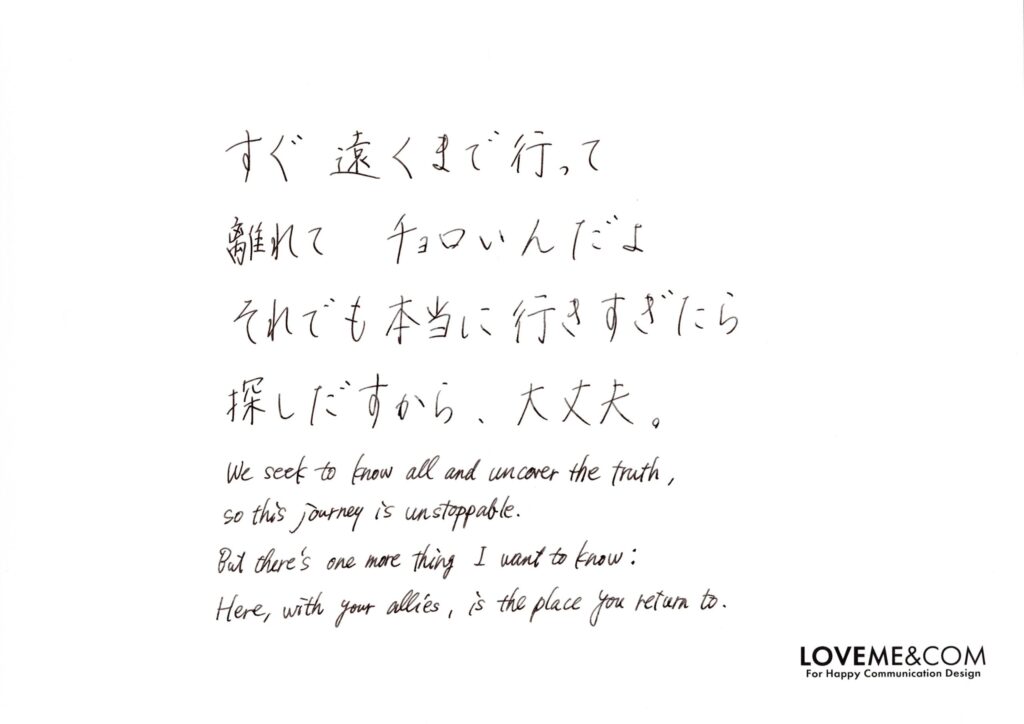 すぐ 遠くまで行って
離れて チョロいんだよ
それでも本当に行きすぎたら
探しだすから、大丈夫。
We seek to know all and uncover the truth,
so this journey is unstoppable.
But there's one more thing I want to know:
Here, with your allies, is the place you return to.
LOVEME&COM
For Happy Communication Design